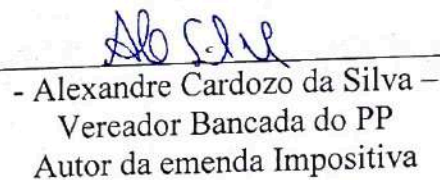 - Alexandre Cardozo da Silva –
Vereador Bancada do PP
Autor da emenda Impositiva